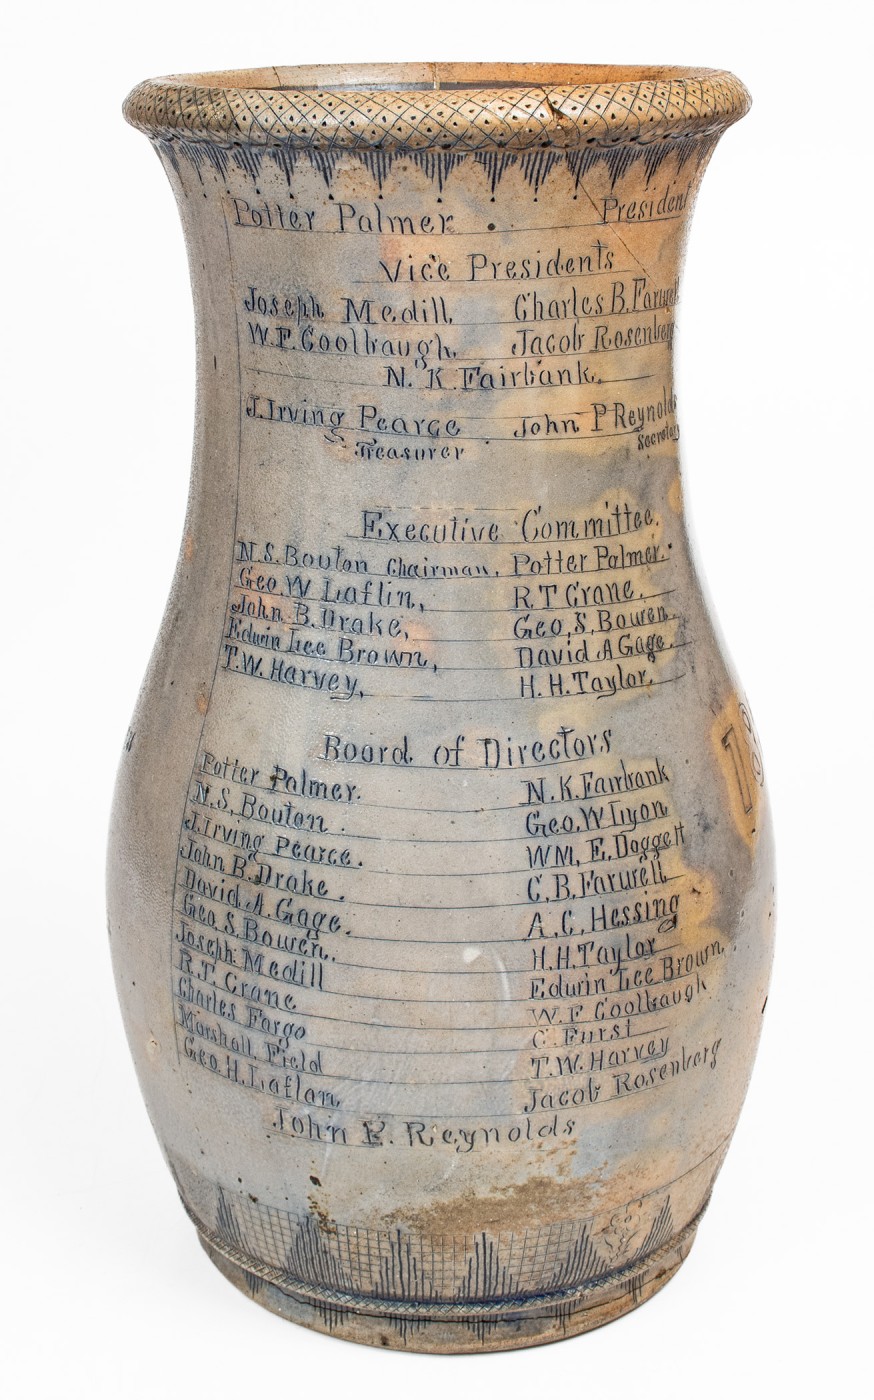 Potter Palmer President
Vice Presidents
Joseph Medill Charles B. Farwell
W.F. Coolbaugh. Jacob Rosenberg
N. K. Fairbank.
J. Irving Pearce John P Reynolds
Treasurer Secretary
Executive Committee.
N.S. Bouton Chairman, Potter Palmer.
Geo. W Laflin, R.T Crane.
John B. Drake, Geo. S. Bowen.
Edwin Lee Brown, David A Gage.
T.W. Harvey, H.H. Taylor.
Board of Directors
Potter Palmer. N.K. Fairbank
N.S. Bouton. Geo. W Lyon
J. Irving Pearce. WM. E. Doggett
John B. Drake. C.B. Farwell
David A. Gage. A.C. Hessing
Geo. S. Bowen. H.H. Taylor
Joseph Medill Edwin Lee Brown
R.T. Crane W.F Coolbaugh
Charles Fargo C. Furst
Marshall Field T.W. Harvey
Geo. H. Laflan Jacob Rosenberg
John P. Reynolds